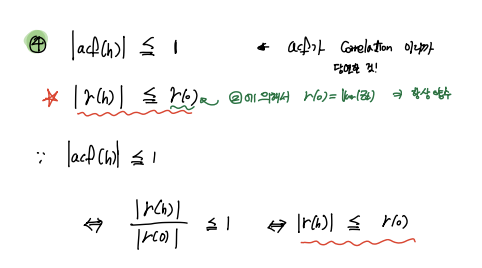 ④ |acf(h)| ≦ 1 ← acf가 Correlation 이니까
당연한 것!
☆ |r(h)| ≦ r(0) ②에 의해서 r(0)=Var(Zt) ⇒ 항상 양수
∵ |acf(h)| ≦ 1
⇔ |r(h)| / |r(0)| ≦ 1 ⇔ |r(h)| ≦ r(0)